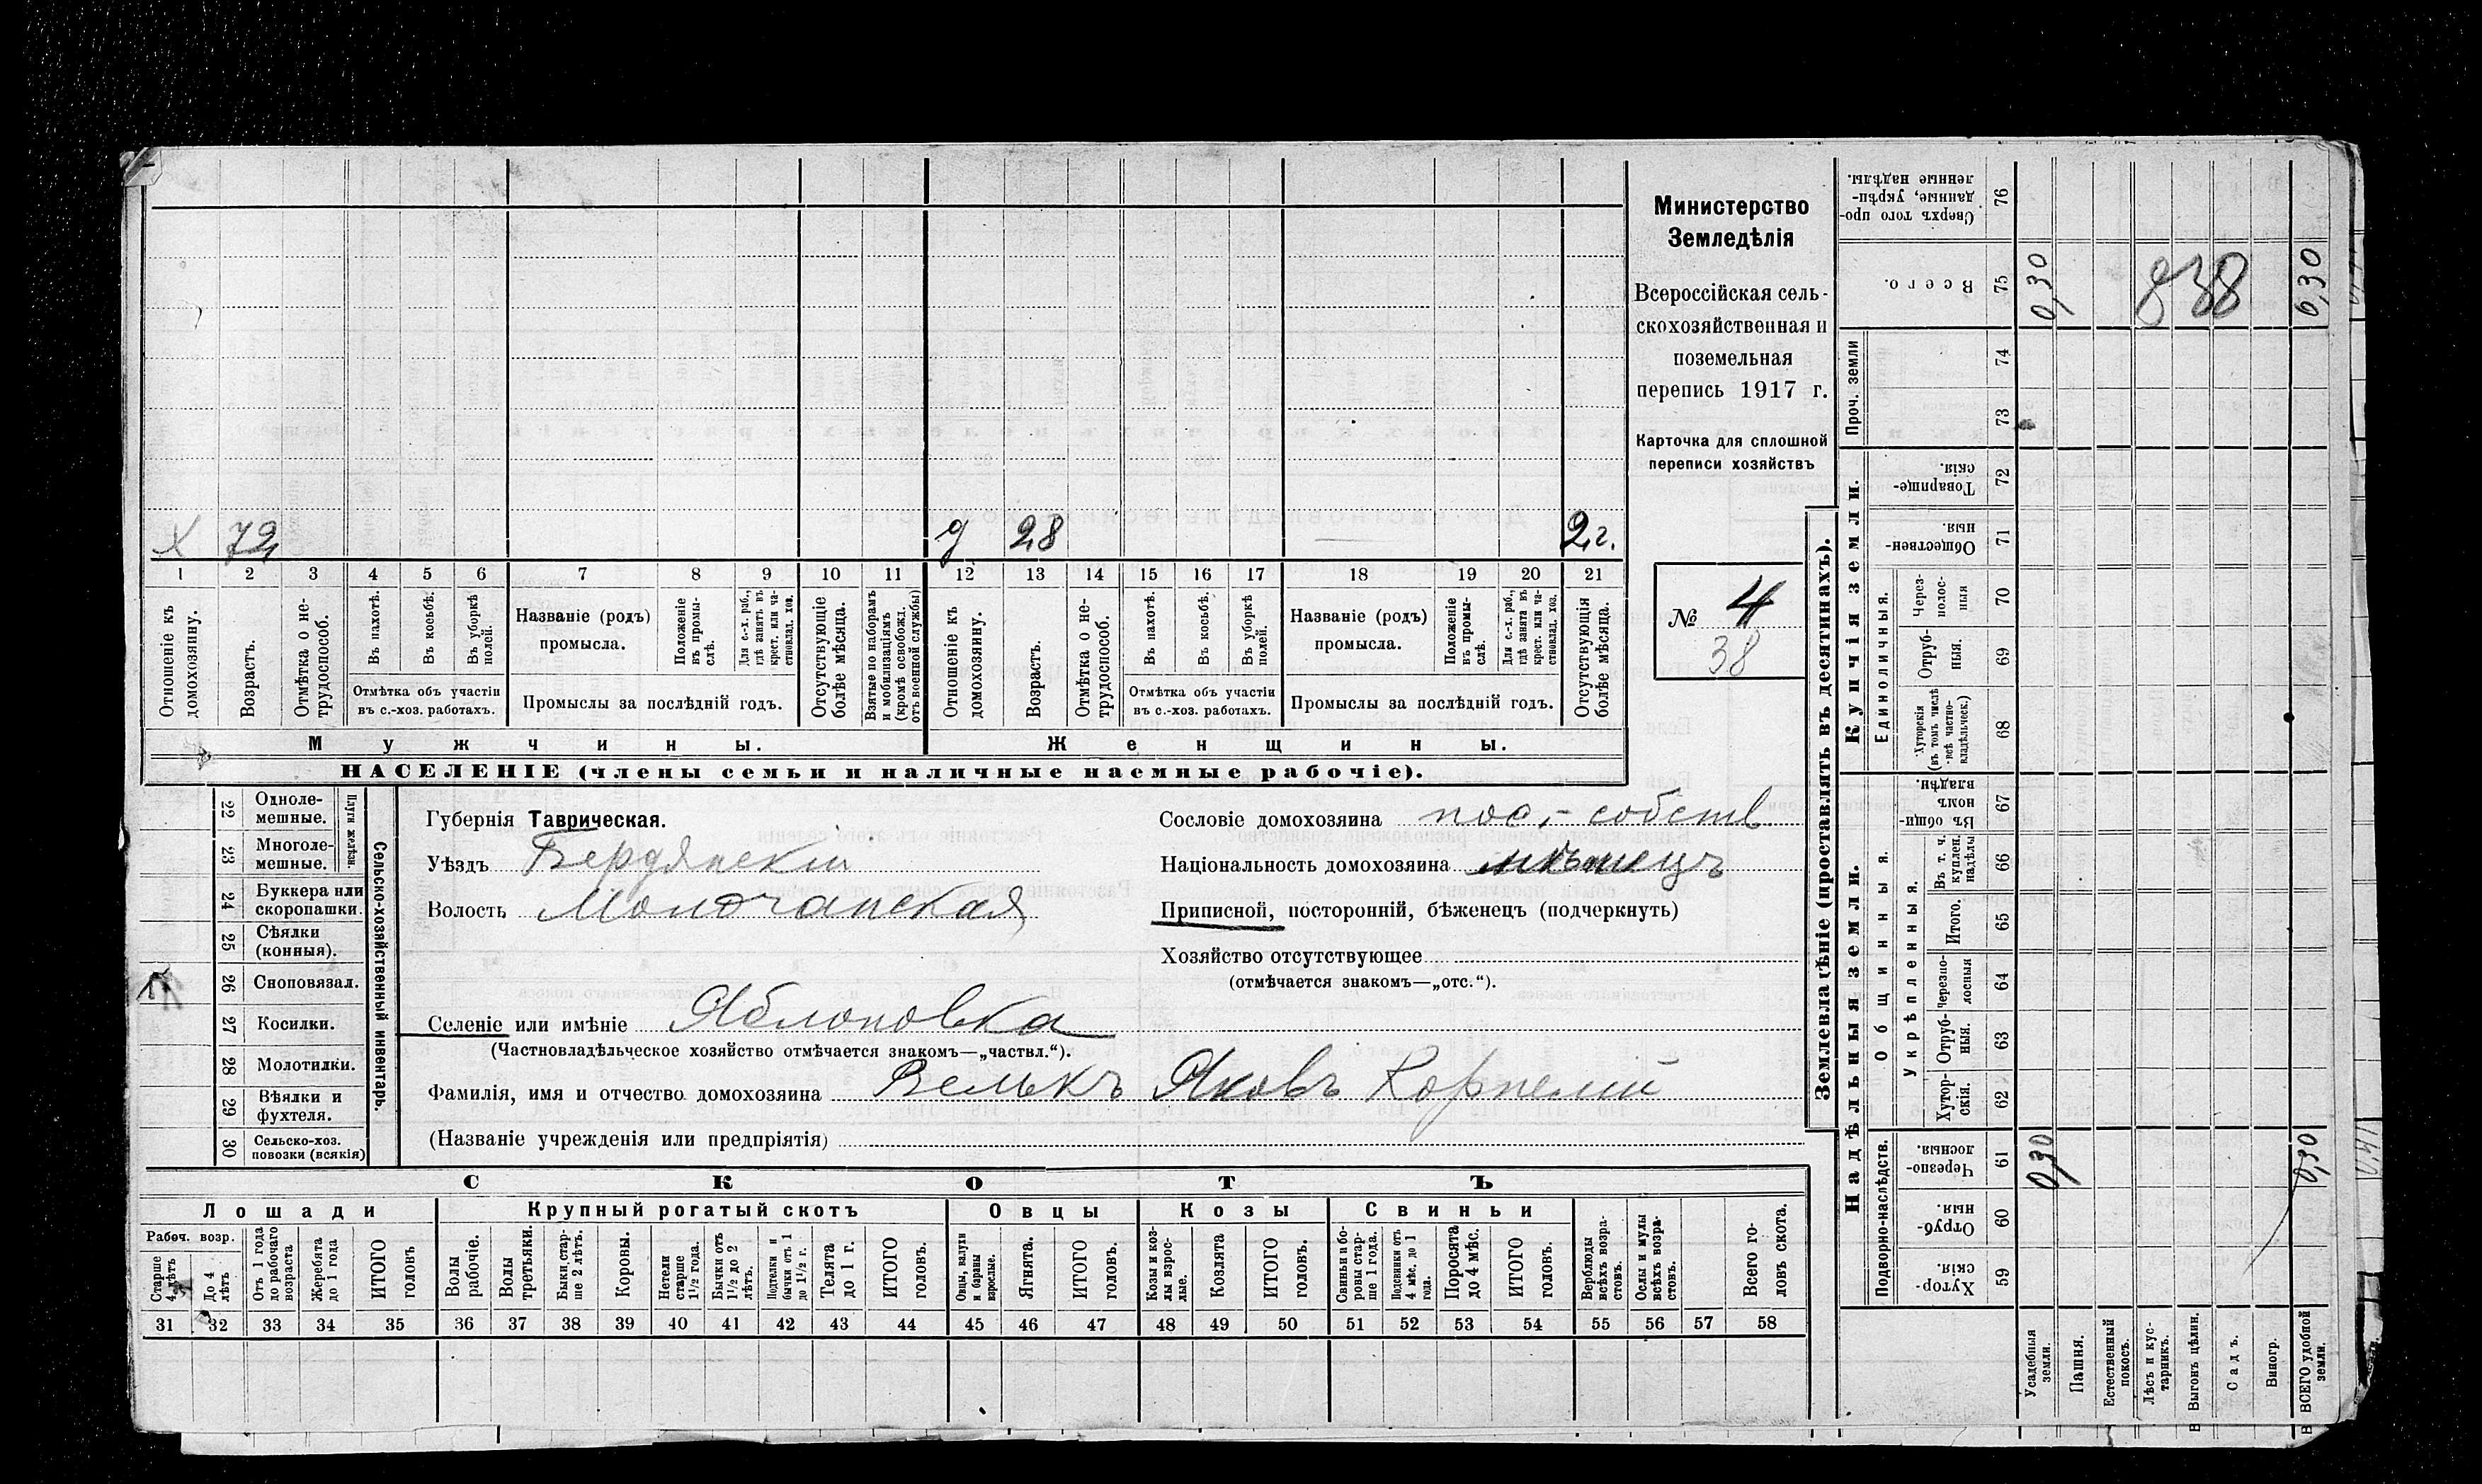 Министерство
Земледѣлія
Всероссійская сель-
скохозяйственная и
поземельная
перепись 1917 г.
Карточка для сплошной
переписи хозяйствъ
№ 4
38
Х 72 д 28 2 г.
1 2 3 4 5 6 7 8 9 10 11 12 13 14 15 16 17 18 19 20 21
Отношеніе къ домохозяину.
Возрастъ.
Отмѣтка о не-трудоспособ.
Въ пахотѣ.
Въ косьбѣ.
Въ уборкѣ полей.
Отмѣтка объ участіи
въ с.-хоз. работахъ.
Названіе (родъ)
промысла.
Положеніе въ промы-слѣ.
Для с.-х. раб., гдѣ занятъ въ крест. или ча-стновлад. хоз.
Промыслы за послѣдній годъ.
Отсутствующіе болѣе мѣсяца.
Взятые по наборамъ и мобилизаціямъ (кромѣ освобожд. отъ военной службы)
Отношеніе къ домохозяину.
Возрастъ.
Отмѣтка о не-трудоспособ.
Въ пахотѣ.
Въ косьбѣ.
Въ уборкѣ полей.
Отмѣтка объ участіи
въ с.-хоз. работахъ.
Названіе (родъ)
промысла.
Положеніе въ промы-слѣ.
Для с.-х. раб., гдѣ занята въ крест. или ча-стновлад. хоз.
Промыслы за послѣдній годъ.
Отсутствующія болѣе мѣсяца.
Мужчины.
Женщины.
НАСЕЛЕНІЕ (члены семьи и наличные наемные рабочіе).
Сельско-хозяйственный инвентарь.
Плуги желѣзн.
22 Одноле-мешные.
23 Многоле-мешные.
24 Буккера или скоропашки.
25 Сѣялки (конныя).
26 Сноповязал.
27 Косилки.
28 Молотилки.
29 Вѣялки и фухтеля.
30 Сельско-хоз. повозки (всякія)
Губернія Таврическая.
Уѣздъ Бердянскій
Волость Молочанская
Селеніе или имѣніе Яблоновка
(Частновладѣльческое хозяйство отмѣчается знакомъ—„частвл.“).
Фамилія, имя и отчество домохозяина Велькъ Яковъ Корнелій
(Названіе учрежденія или предпріятія)
Сословіе домохозяина пос.- собств.
Національность домохозяина нѣмецъ
Приписной, посторонній, бѣженецъ (подчеркнуть)
Хозяйство отсутствующее
(отмѣчается знакомъ—„отс.“).
СКОТЪ
Лошади
Крупный рогатый скотъ
Овцы
Козы
Свиньи
Рабоч. возр.
Старше 4 лѣтъ
До 4 лѣтъ
Отъ 1 года до рабочаго возраста
Жеребята до 1 года
ИТОГО головъ
Волы рабочіе.
Волы третьяки.
Быки стар-ше 2 лѣтъ.
Коровы.
Нетели старше 1½ года.
Бычки отъ 1½ до 2 лѣтъ.
Подтелки и бычки отъ 1 до 1½ г.
Телята до 1 г.
ИТОГО головъ.
Овцы, валухи и бараны взрослые.
Ягнята.
ИТОГО головъ.
Козы и коз-лы взрос-лые.
Козлята
ИТОГО головъ.
Свиньи и бо-ровы стар-ше 1 года.
Подсвинки отъ 4 мѣс. до 1 года.
Поросята до 4 мѣс.
ИТОГО головъ.
Верблюды всѣхъ возра-стовъ.
Ослы и мулы всѣхъ возра-стовъ.
Всего го-ловъ скота.
31 32 33 34 35 36 37 38 39 40 41 42 43 44 45 46 47 48 49 50 51 52 53 54 55 56 57 58
Землевладѣніе (проставлять въ десятинахъ).
Купчія земли.
Надѣльныя земли.
Сверхъ того про-данные, укрѣп-ленные надѣлы. 76
Всего. 75 0,30 838 0,30
Проч. земли
74
73
Товарище-скія. 72
Обществен-ныя 71
Единоличныя.
Через-полос-ныя 70
Отруб-ныя. 69
Хуторскія (въ томъ числѣ всѣ частно-владѣльческ.) 68
Общинныя.
Въ общин-номъ владѣн. 67
Укрѣпленныя.
Въ т. ч. куплен. надѣлы 66
Итого. 65
Черезпо-лосныя 64
Отруб-ныя. 63
Хутор-скія. 62
Подворно-наслѣдств.
Черезпо-лосныя. 61 0,30 0,30
Отруб-ныя. 60
Хутор-скія. 59
Усадебныя земли.
Пашня.
Естественный покосъ.
Лѣсъ и кус-тарникъ.
Выгонъ цѣлин.
Садъ.
Виногр.
ВСЕГО удобной земли.